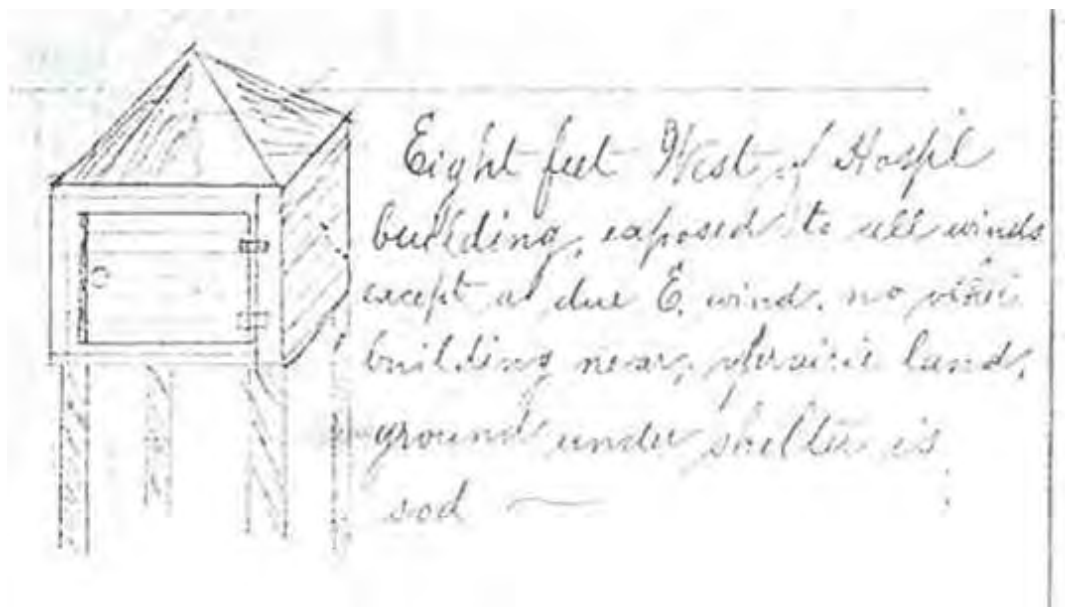 Eight feet West of Hospl
building, exposed to all winds
except a due E. wind. no other
building near, prairie land,
ground under shelter is
sod